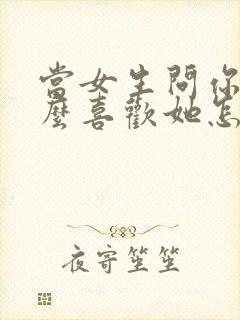 當女生問你
麼喜歡她怎
夜寄笙笙